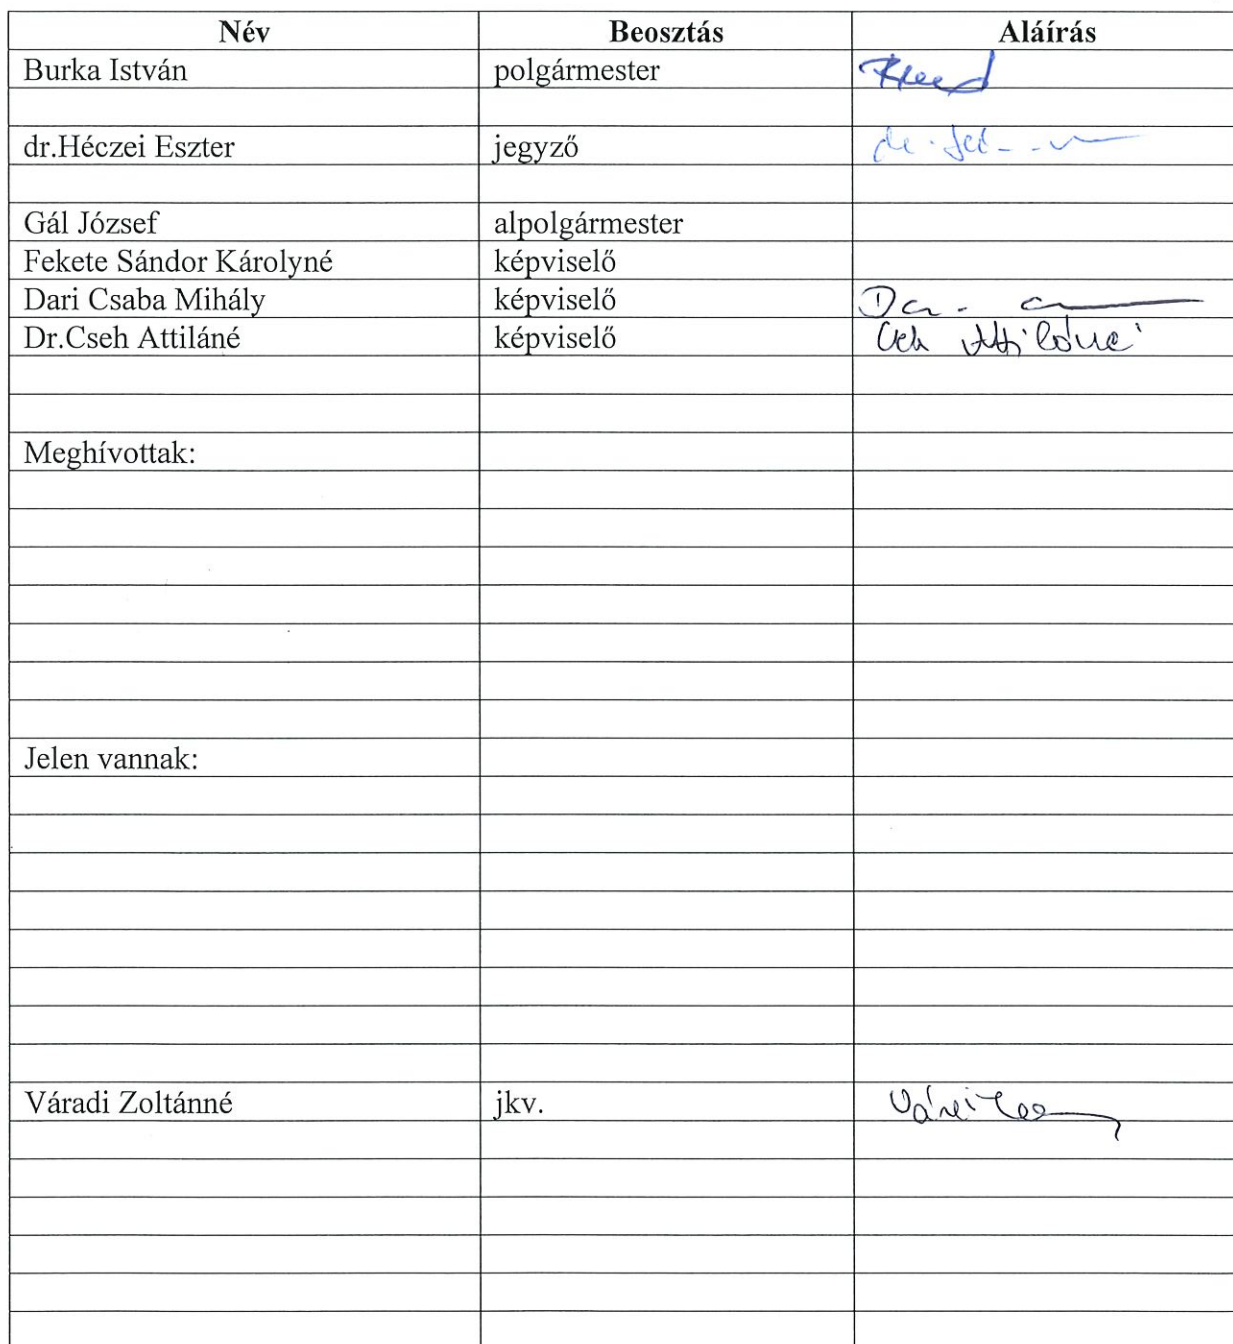 Név Beosztás Aláírás
Burka István polgármester
dr.Héczei Eszter jegyző
Gál József alpolgármester
Fekete Sándor Károlyné képviselő
Dari Csaba Mihály képviselő
Dr.Cseh Attiláné képviselő
Meghívottak:
Jelen vannak:
Váradi Zoltánné jkv.